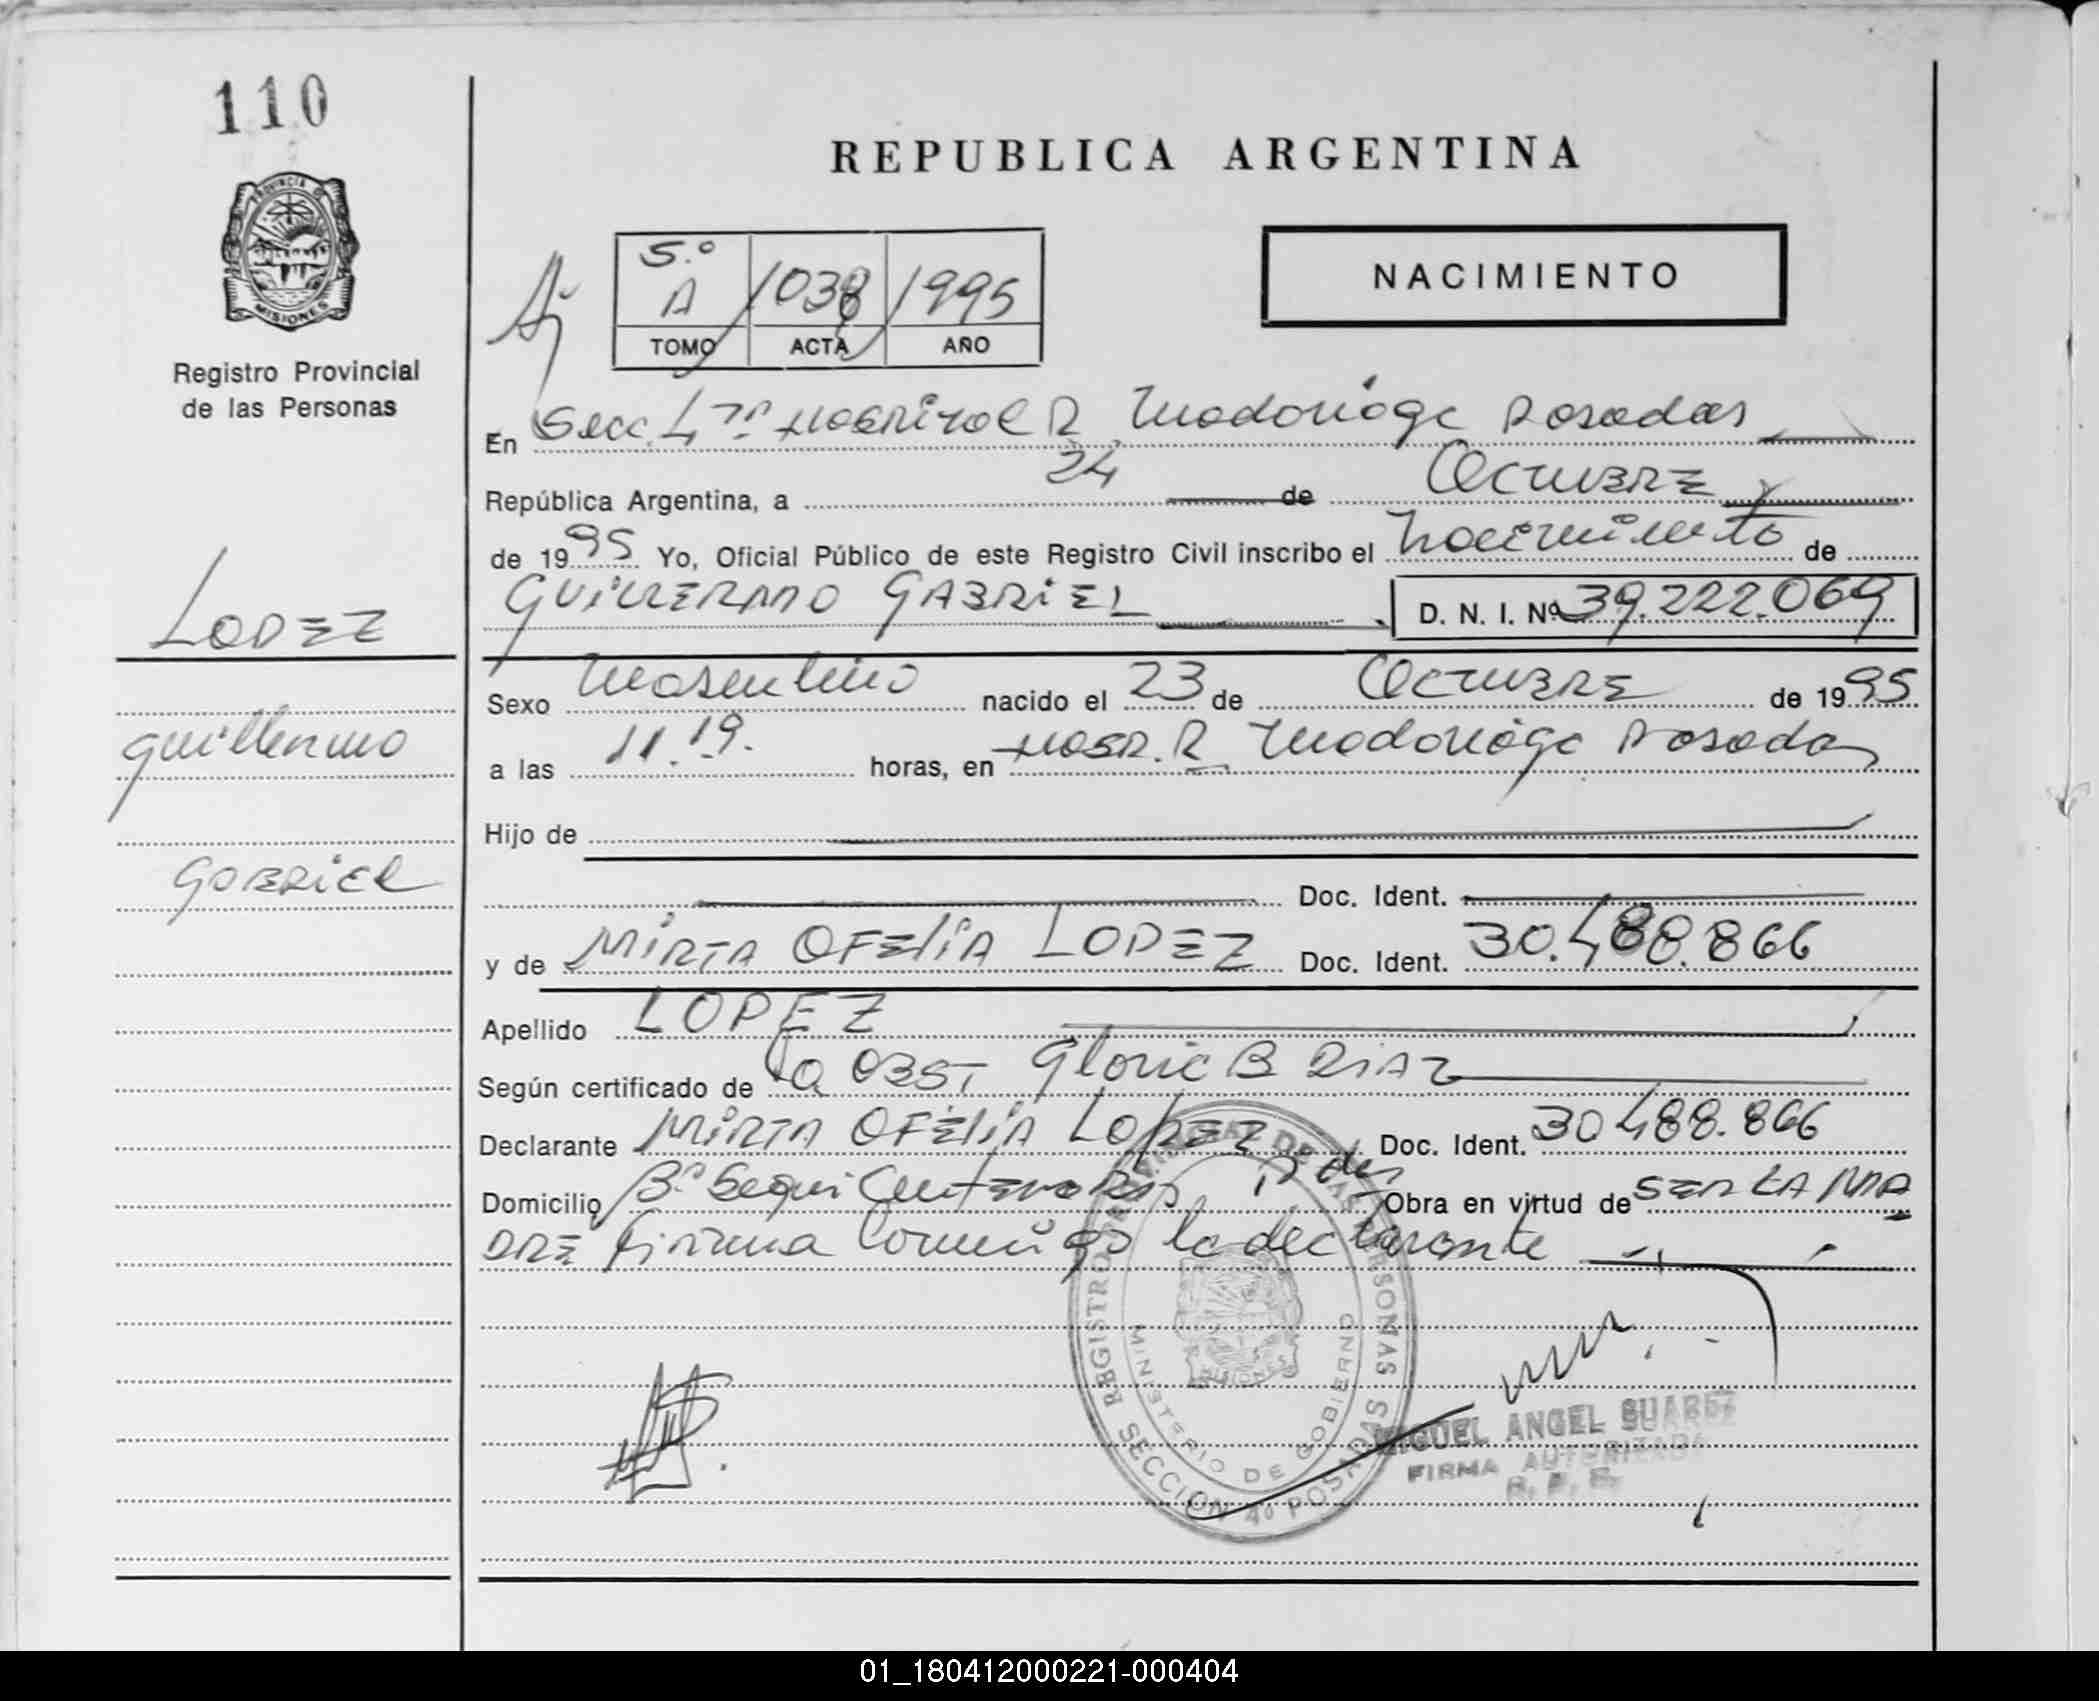 110
REPUBLICA ARGENTINA
PROVINCIA DE
MISIONES
Registro Provincial
de las Personas
NACIMIENTO
5.º
A 1038 1995
TOMO ACTA AÑO
En Secc. 4ta Hospital R. Madoriaga Posadas
República Argentina, a 24 de Octubre
de 1995 Yo, Oficial Público de este Registro Civil inscribo el nacimiento de
GUILLERMO GABRIEL D. N. I. Nº 39.222.069
LOPEZ
Guillermo
Gabriel
Sexo Masculino nacido el 23 de Octubre de 1995
a las 11.19. horas, en Hosp. R. Madoriaga Posadas
Hijo de
Doc. Ident.
y de MIRTA OFELIA LOPEZ Doc. Ident. 30.488.866
Apellido LOPEZ
Según certificado de la OBST Gloria B DIAZ
Declarante MIRTA OFELIA LOPEZ Doc. Ident. 30488.866
Domicilio Bº Sesquicentenario Pdas Obra en virtud de SER LA MA
DRE Firma conmigo la declarante
REGISTRO PROVINCIAL DE LAS PERSONAS
MINISTERIO DE GOBIERNO
MISIONES
SECCION 4º POSADAS
MIGUEL ANGEL SUAREZ
FIRMA AUTORIZADA
01_180412000221-000404